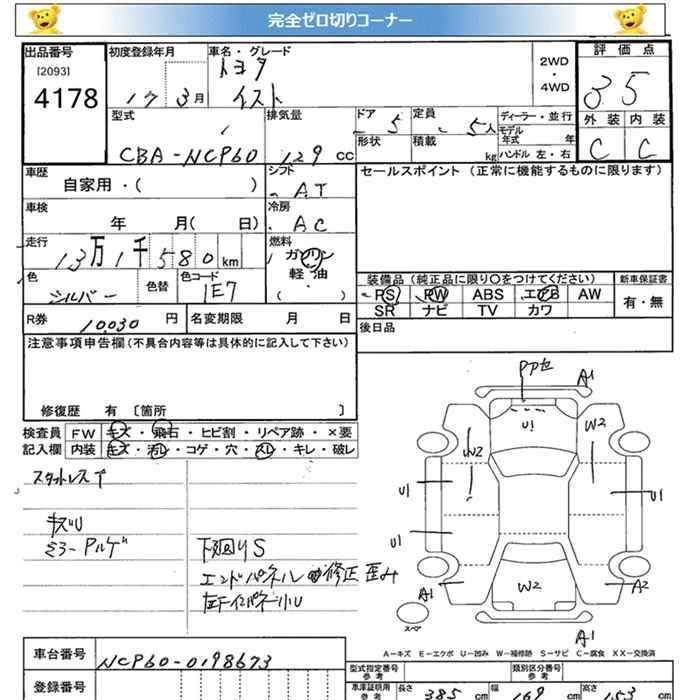 完全ゼロ切りコーナー
出品番号 初度登録年月 車名・グレード 評価点
[2093] トヨタ 2WD・4WD 3 5
4178 17 3月 イスト
型式 排気量 ドア 定員 ディーラー・並行 外装 内装
5 5人 モデル年式 年 C C
CBA-NCP60 1.29 CC 形状 積載 kg ハンドル 左・右
車歴 シフト セールスポイント (正常に機能するものに限ります)
自家用・( ) AT
車検 冷房
年 月( 日) AC
走行 燃料
13万1千580km ガソリン
色 色替 色コード 軽油 装備品 (純正品に限り○をつけてください) 新車保証書
シルバー 1E7 ( ) PS PW ABS エアB AW 有・無
R券 10,030円 名変期限 月 日 SR ナビ TV カワ
後日品
注意事項申告欄(不具合内容等は具体的に記入して下さい)
修復歴 有 〔箇所 〕
検査員 FW キズ・飛石・ヒビ割・リペア跡・×要
記入欄 内装 キズ・汚レ・コゲ・穴・スレ・キレ・破レ
スタットレス
キズU
ミラーPルゲ
下廻りS
エンドパネル 修正 歪み
小U
A1
U1 W2
W2
U1 U1
U1
W2
A1 A2
スペア
A1
A-キズ E-エクボ U-凹み W-補修跡 S-サビ C-腐食 XX-交換済
車台番号 NCP60-0198673
型式指定番号 参考 類別区分番号 参考
登録番号 車庫証明用 参考 長さ 385 cm 幅 169 cm 高さ 153 cm